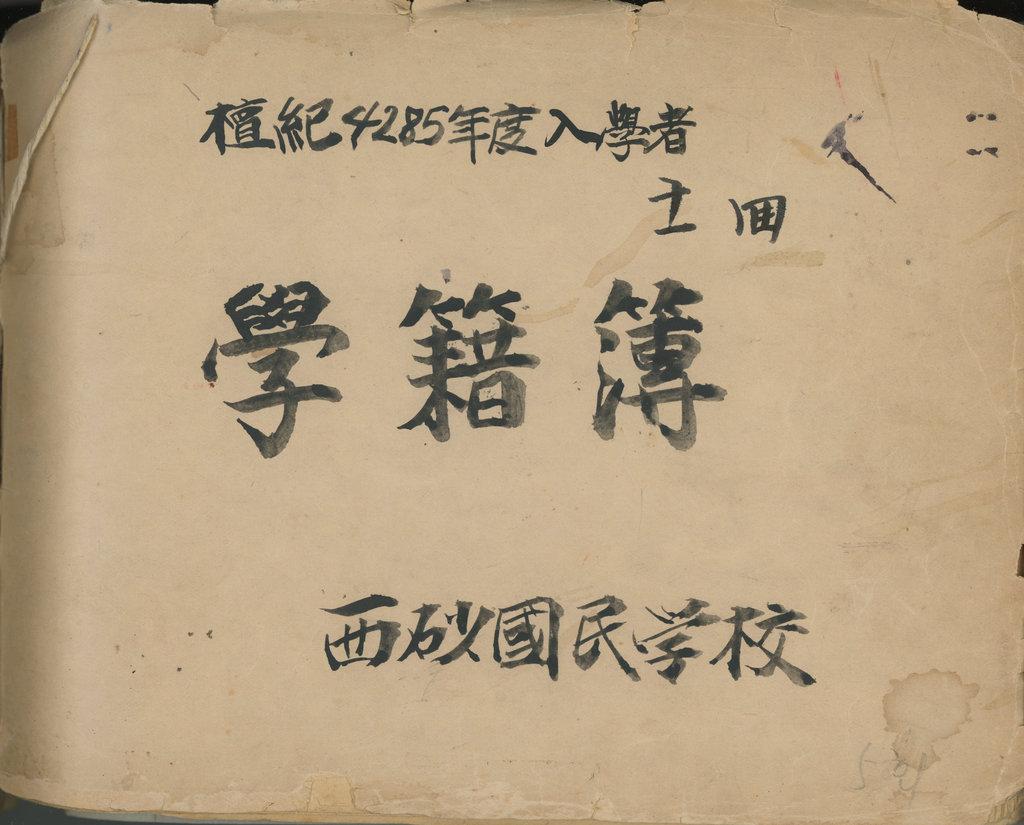 檀紀4285年度入學者
學籍簿
西砂國民学校